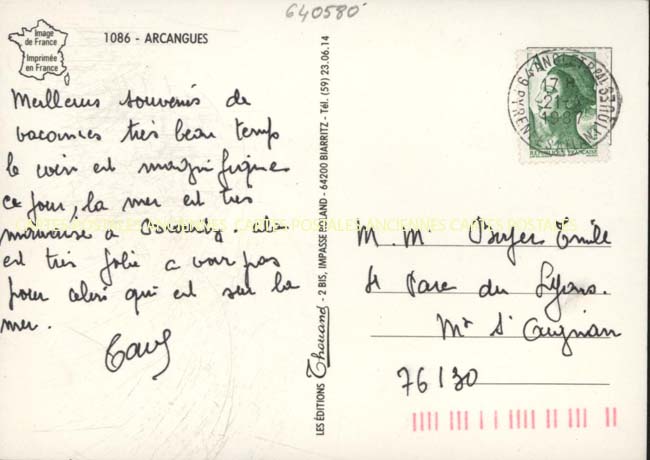 640580
Image
de France
Imprimée
en France
1086 - ARCANGUES
Meilleurs souvenirs de
vacances très beau temps
le coin est magnifique
ce jour, la mer est très
mauvaise à Biarritz.
est très jolie a voir pas
pour celui qui est sur la
mer.
LES ÉDITIONS Thouand - 2 BIS, IMPASSE MILAND - 64200 BIARRITZ - Tél. (59) 23.06.14
64 ANGLET PPAL
17
PYREN. ATLANTIQUES
REPUBLIQUE FRANÇAISE
CARTES POSTALES ANCIENNES CARTES POSTALES ANCIENNES CARTES POSTALES
M. Me Emile
4 Parc du Lyons.
Mt St Aignan
76130